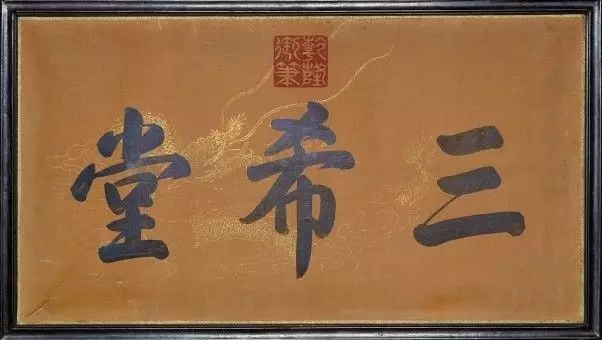 乾隆御筆
三希堂